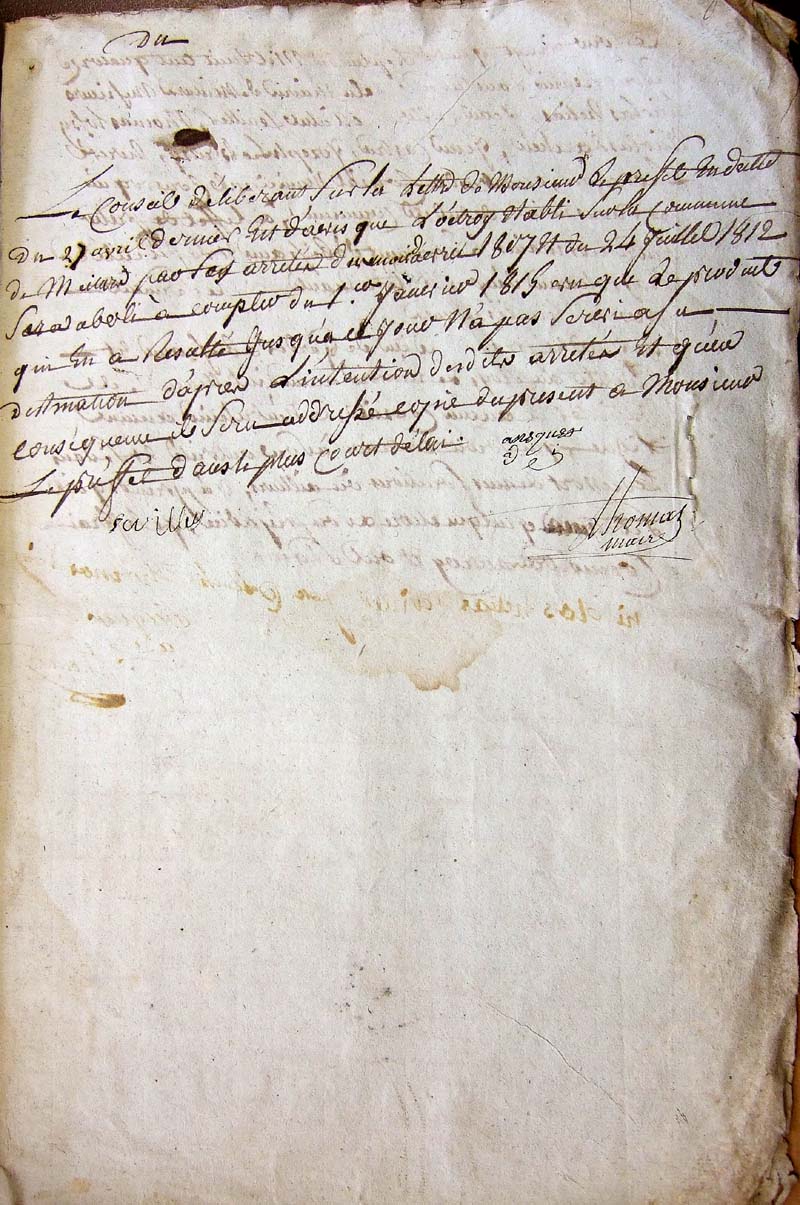 Du
Le Conseil deliberant sur la lettre de Monsieur le preffet En datte
du 27 avril dernier Est d'avis que L'octroy Etabli sur la Commune
de par les arretés du mois davril 1807 Et du 24 Juillet 1812
Sera aboli à compter du 1.er Janvier 1815 vu que le produit
qui En a Resulté Jusqu'a ce Jour N'a pas Servi a sa
destination d'après L'intention desdits arretés Et qu'en
Conséquence il Sera addressé copie du present a Monsieur
Le préffet dans le plus Court délai.
Thomas
maire